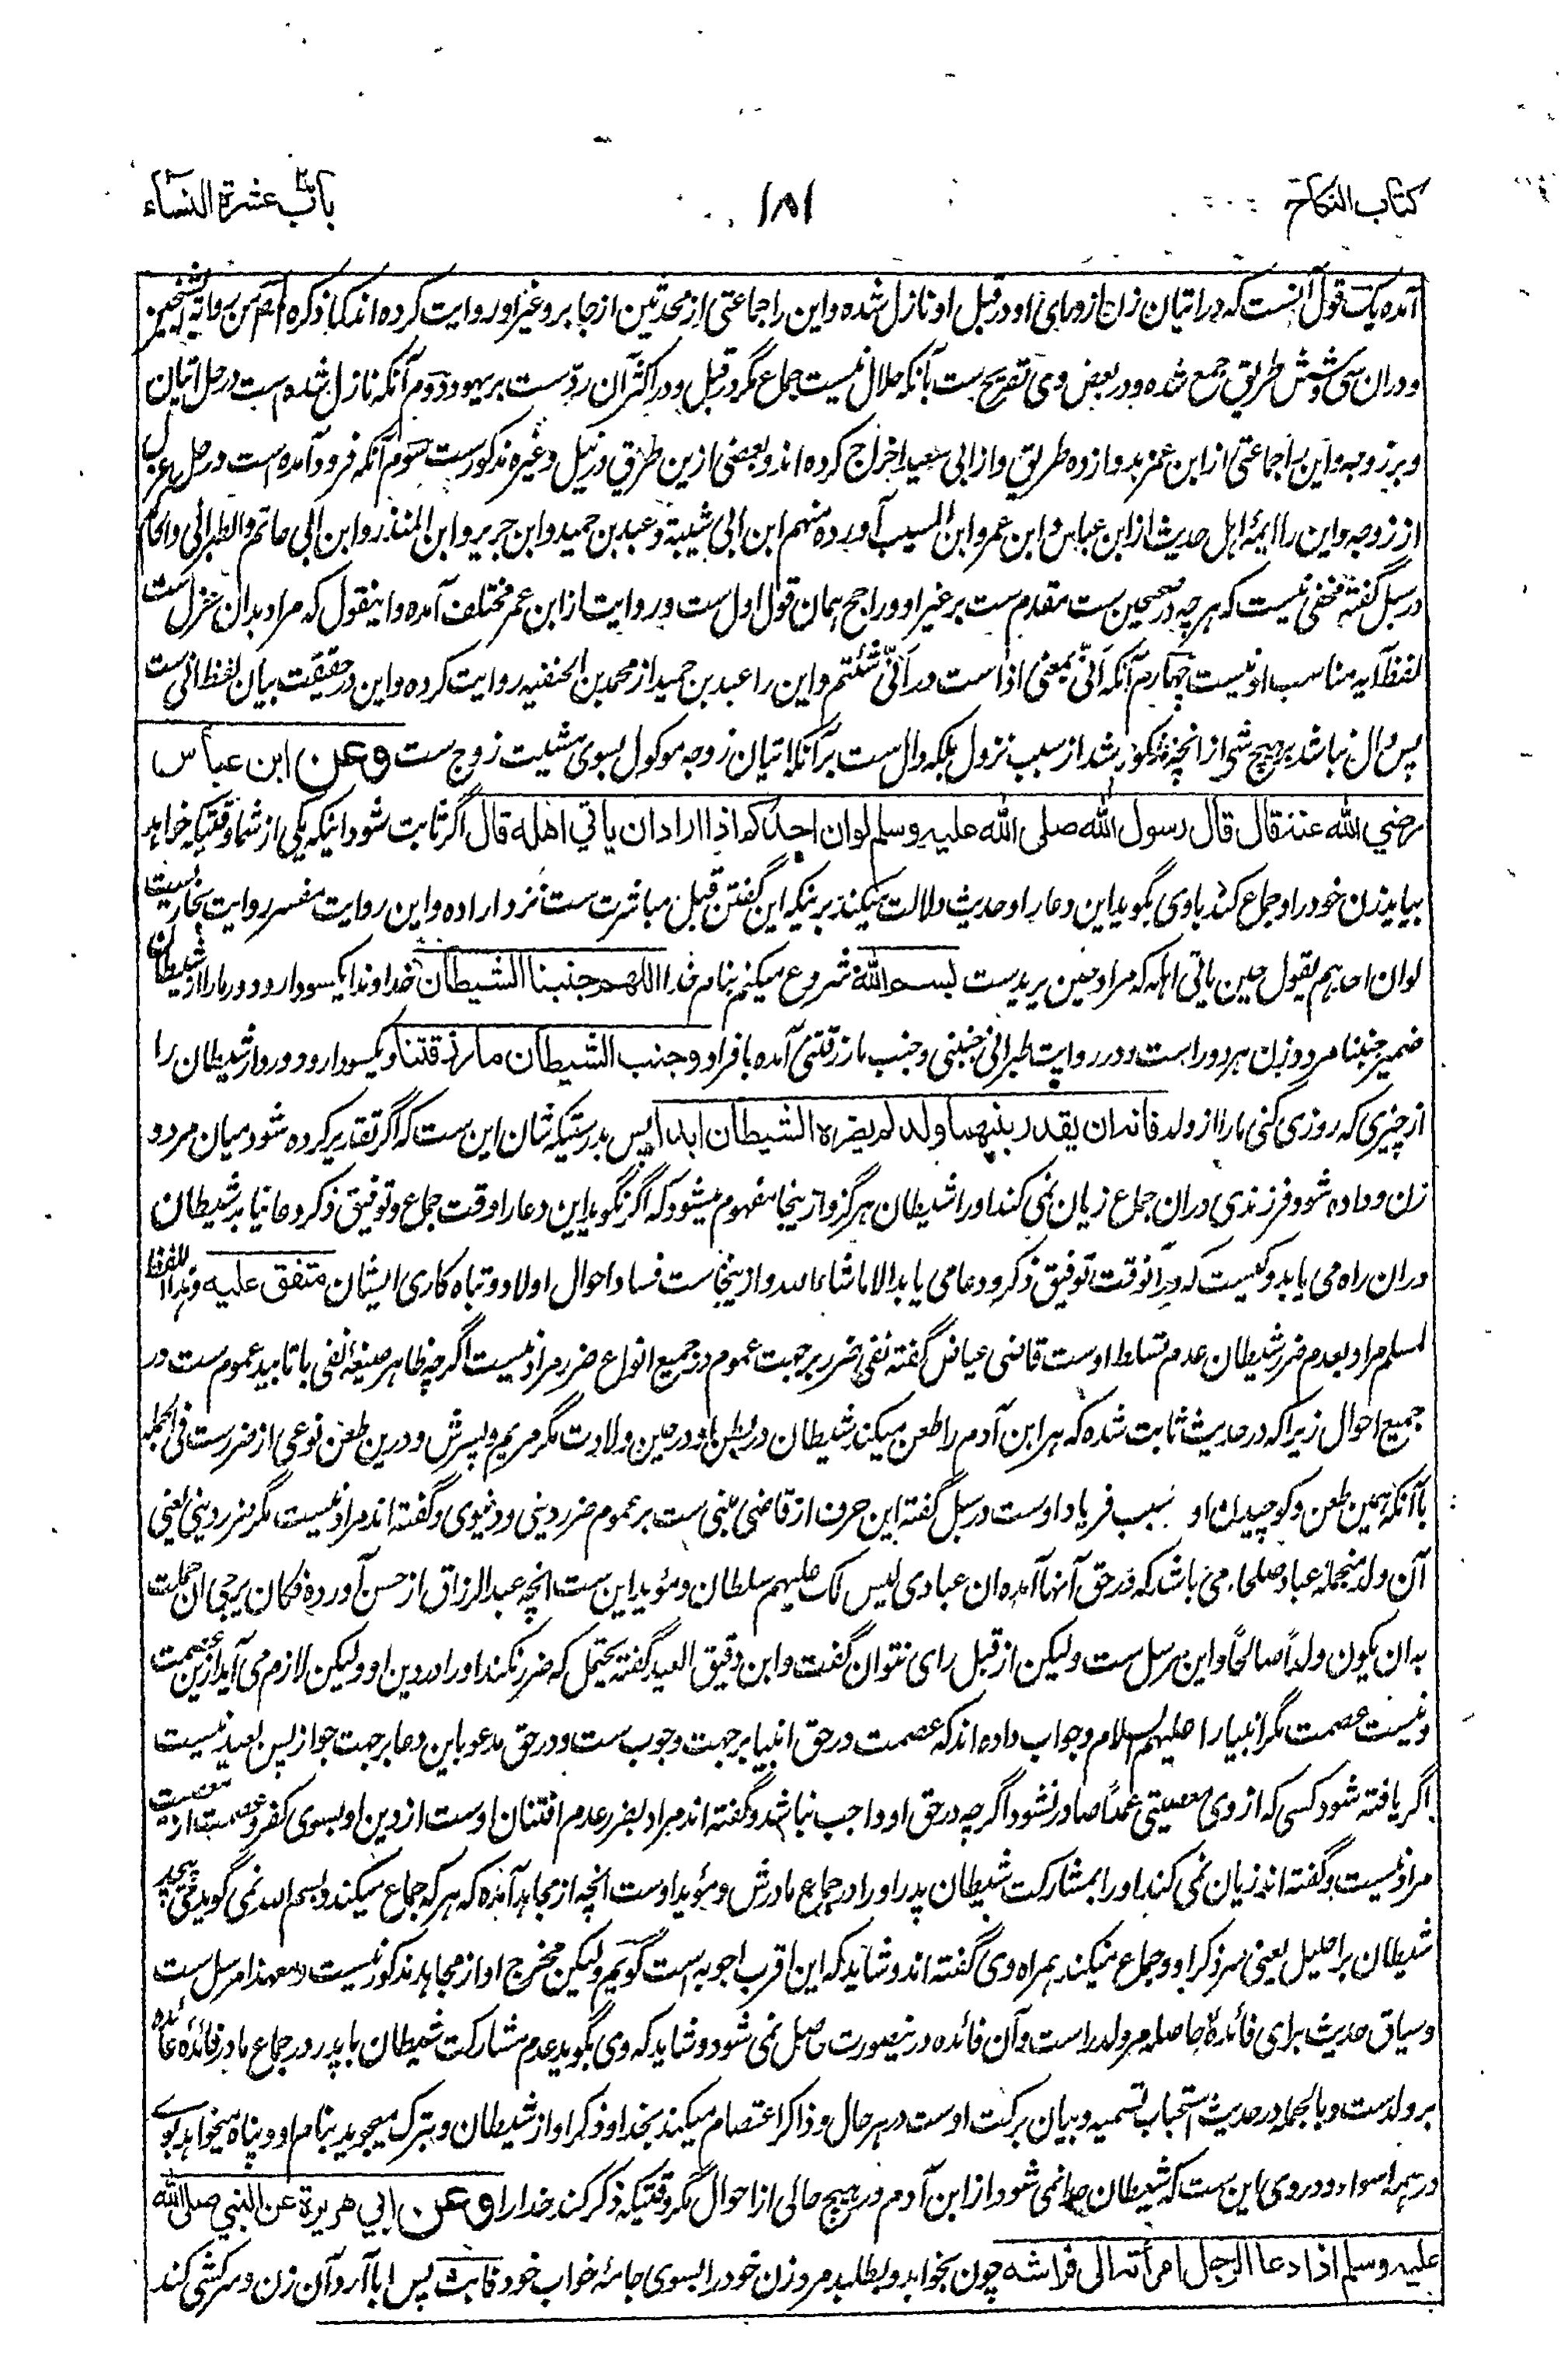 کتاب النکاح
۱۸۱
باب عشرة النساء
آمده یک قول آنست که در اتیان زن از ورای او در قبل او نازل شده و این را جماعتی از محدثین از جابر و غیر او روایت کرده اند کما ذکره المصنف من روایة الشیخین
و دران سی و شش طریق جمع شده و در بعض وی تصریح ست بآنکه حلال نیست جماع مگر در قبل و در اکثر آن ردست بر یهود دوم آنکه نازل شده است در حل اتیان
دبر زوجه و این را جماعتی از ابن عمر بدوازده طریق و از ابی سعید اخراج کرده اند و بعضی ازین طرق در نیل و غیره مذکورست سوم آنکه فرود آمده است در حل عزل
از زوجه و این را ائمۀ اهل حدیث از ابن عباس و ابن عمر و ابن المسیب آورده منهم ابن ابی شیبة و عبد بن حمید و ابن جریر و ابن المنذر و ابن ابی حاتم و الطبرانی و الحاکم
در سبل گفته مخفی نیست که هر چه در صحیحین ست مقدم ست بر غیر او و راجح همان قول اول ست و روایت از ابن عمر مختلف آمده و اینقول که مراد بدان عزل ست
لفظ آیه مناسب او نیست چهارم آنکه أنّی بمعنی اذا ست در أنّی شئتم و این را عبد بن حمید از محمد بن الحنفیه روایت کرده و این در حقیقت بیان لفظ انی ست
پس دال نباشد بر هیچ شی از انچه مذکور شد از سبب نزول بلکه دال ست بر آنکه اتیان زوجه موکول بسوی مشیت زوج ست وعن ابن عباس
رضي الله عنه قال قال رسول الله صلی الله علیه وسلم لو ان احدکم اذا اراد ان یاتي اهله قال اگر ثابت شود اینکه یکی از شما وقتیکه خواهد
بیاید زن خود را و جماع کند باوی بگوید این دعا را و حدیث دلالت میکند برینکه این گفتن قبل مباشرت ست نزد اراده و این روایت مفسر روایت بخاریست
لو ان احدهم یقول حین یاتی اهله که مراد بحین یرید ست بسم الله شروع میکنم بنام خدا اللهم جنبنا الشیطان خداوندا یکسو دار و دور ما را از شیطان
ضمیر جنبنا مرد و زن هر دو راست و در روایت طبرانی جنبنی و جنب ما رزقتنی آمده بافراد وجنب الشیطان ما رزقتنا و یکسو دار و دور دار شیطان را
از چیزی که روزی کنی ما را از ولد فانه ان یقدر بینهما ولد لم یضره الشیطان ابدا پس بدرستیکه شان این ست که اگر تقدیر کرده شود میان مرد و
زن و داده شود فرزندی دران جماع زیان نمی کند او را شیطان هرگز و ازینجا مفهوم میشود که اگر نگوید این دعا را وقت جماع و توفیق ذکر و دعا نیابد شیطان
دران راه می یابد و کیست که درآنوقت توفیق ذکر و دعا می یابد الا ما شاء الله و ازینجاست فساد احوال اولاد و تباه کاری ایشان متفق علیه و هذا اللفظ
لمسلم مراد بعدم ضرر شیطان عدم تسلط اوست قاضی عیاض گفته نفی ضرر بر جهت عموم در جمیع انواع ضرر مراد نیست اگر چه ظاهر صیغۀ نفی با تابید عموم ست در
جمیع احوال زیرا که در حدیث ثابت شده که هر ابن آدم را طعن میکند شیطان در بطن او در حین ولادت مگر مریم و پسرش و درین طعن نوعی از ضررست فی الجمله
باآنکه همین طعن و کوچیدن او سبب فریاد اوست در سبل گفته این حرف از قاضی مبنی ست بر عموم ضرر دینی و دنیوی و گفته اند مراد نیست مگر ضرر دینی یعنی
آن ولد منجمله عباد صلحاء می باشد که در حق آنها آمده ان عبادی لیس لک علیهم سلطان و مؤید این ست انچه عبدالرزاق از حسن آورده فکان یرجی ان حملت
به ان یکون ولداً صالحاً و این مرسل ست ولیکن از قبل رای نتوان گفت و ابن دقیق العید گفته یحتمل که ضرر نکند او را در دین او ولیکن لازم می آید ازین عصمت
و نیست عصمت مگر انبیا را علیهم السلام و جواب داده اند که عصمت در حق انبیا بر جهت وجوب ست و در حق مدعو باین دعا بر جهت جواز پس بعید نیست
اگر یافته شود کسی که از وی معصیتی عمداً صادر نشود اگر چه در حق او واجب نباشد و گفته اند مراد بضرر عدم افتتان اوست از دین او بسوی کفر و عصمت از معصیت
مراد نیست و گفته اند زیان نمی کند او را بمشارکت شیطان پدر او را در جماع مادرش و مؤید اوست انچه از مجاهد آمده که هر که جماع میکند و بسم الله نمی گوید می پیچد
شیطان بر احلیل یعنی سر ذکر او و جماع میکند همراه وی گفته اند و شاید که این اقرب اجوبه است گویم ولیکن مخرج او از مجاهد مذکور نیست و معهذا مرسل ست
و سیاق حدیث برای فائدۀ حاصله مر ولد راست و آن فائده درینصورت حاصل نمی شود و شاید که وی بگوید عدم مشارکت شیطان با پدر در جماع مادر فائدۀ عائده
بر ولدست و بالجمله در حدیث استحباب تسمیه و بیان برکت اوست در هر حال و ذاکر اعتصام میکند بخدا و ذکر او از شیطان و تبرک میجوید بنام او و پناه میخواهد بوی
در همه اسواء و در وی این ست که شیطان جدا نمی شود از ابن آدم در هیچ حالی از احوال مگر وقتیکه ذکر کند خدا را وعن ابي هریرة عن النبي صلی الله
علیه وسلم اذا دعا الرجل امرأته الی فراشه چون بخواهد و بطلبد مرد زن خود را بسوی جامۀ خواب خود فابت پس ابا آرد آن زن و سرکشی کند